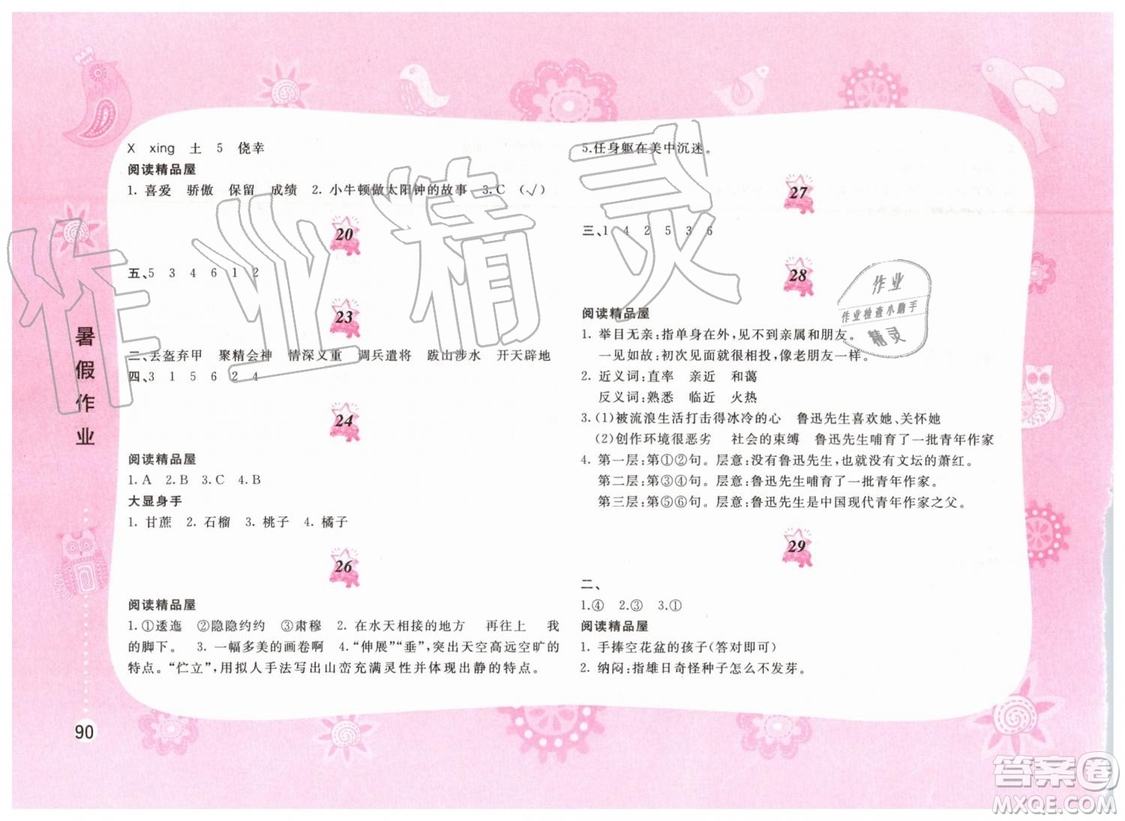 X xing 土 5 侥幸
阅读精品屋
1. 喜爱 骄傲 保留 成绩 2. 小牛顿做太阳钟的故事 3.C (√)
20
五、5 3 4 6 1 2
23
二、丢盔弃甲 聚精会神 情深义重 调兵遣将 跋山涉水 开天辟地
四、3 1 5 6 2 4
24
阅读精品屋
1. A 2. B 3. C 4. B
大显身手
1. 甘蔗 2. 石榴 3. 桃子 4. 橘子
26
阅读精品屋
1. ①逶迤 ②隐隐约约 ③肃穆 2. 在水天相接的地方 再往上 我
的脚下。 3. 一幅多美的画卷啊 4.“伸展”“垂”,突出天空高远空旷的
特点。“伫立”,用拟人手法写出山峦充满灵性并体现出静的特点。
5.任身躯在美中沉迷。
27
三、1 4 2 5 3 6
28
阅读精品屋
1. 举目无亲:指单身在外,见不到亲属和朋友。
一见如故:初次见面很相投,像老朋友一样。
2. 近义词:直率 亲近 和蔼
反义词:熟悉 临近 火热
3. (1)被流浪生活打击得冰冷的心 鲁迅先生喜欢她、关怀她
(2)创作环境很恶劣 社会的束缚 鲁迅先生哺育了一批青年作家
4. 第一层:第①②句。层意:没有鲁迅先生,也就没有文坛的萧红。
第二层:第③④句。层意:鲁迅先生哺育了一批青年作家。
第三层:第⑤⑥句。层意:鲁迅先生是中国现代青年作家之父。
29
二、
1.④ 2.③ 3.①
阅读精品屋
1. 手捧空花盆的孩子(答对即可)
2. 纳闷:指雄日奇怪种子怎么不发芽。
暑假作业
90
作业精灵
作业
作业检查小助手
精灵
答案卷
MXQE.COM